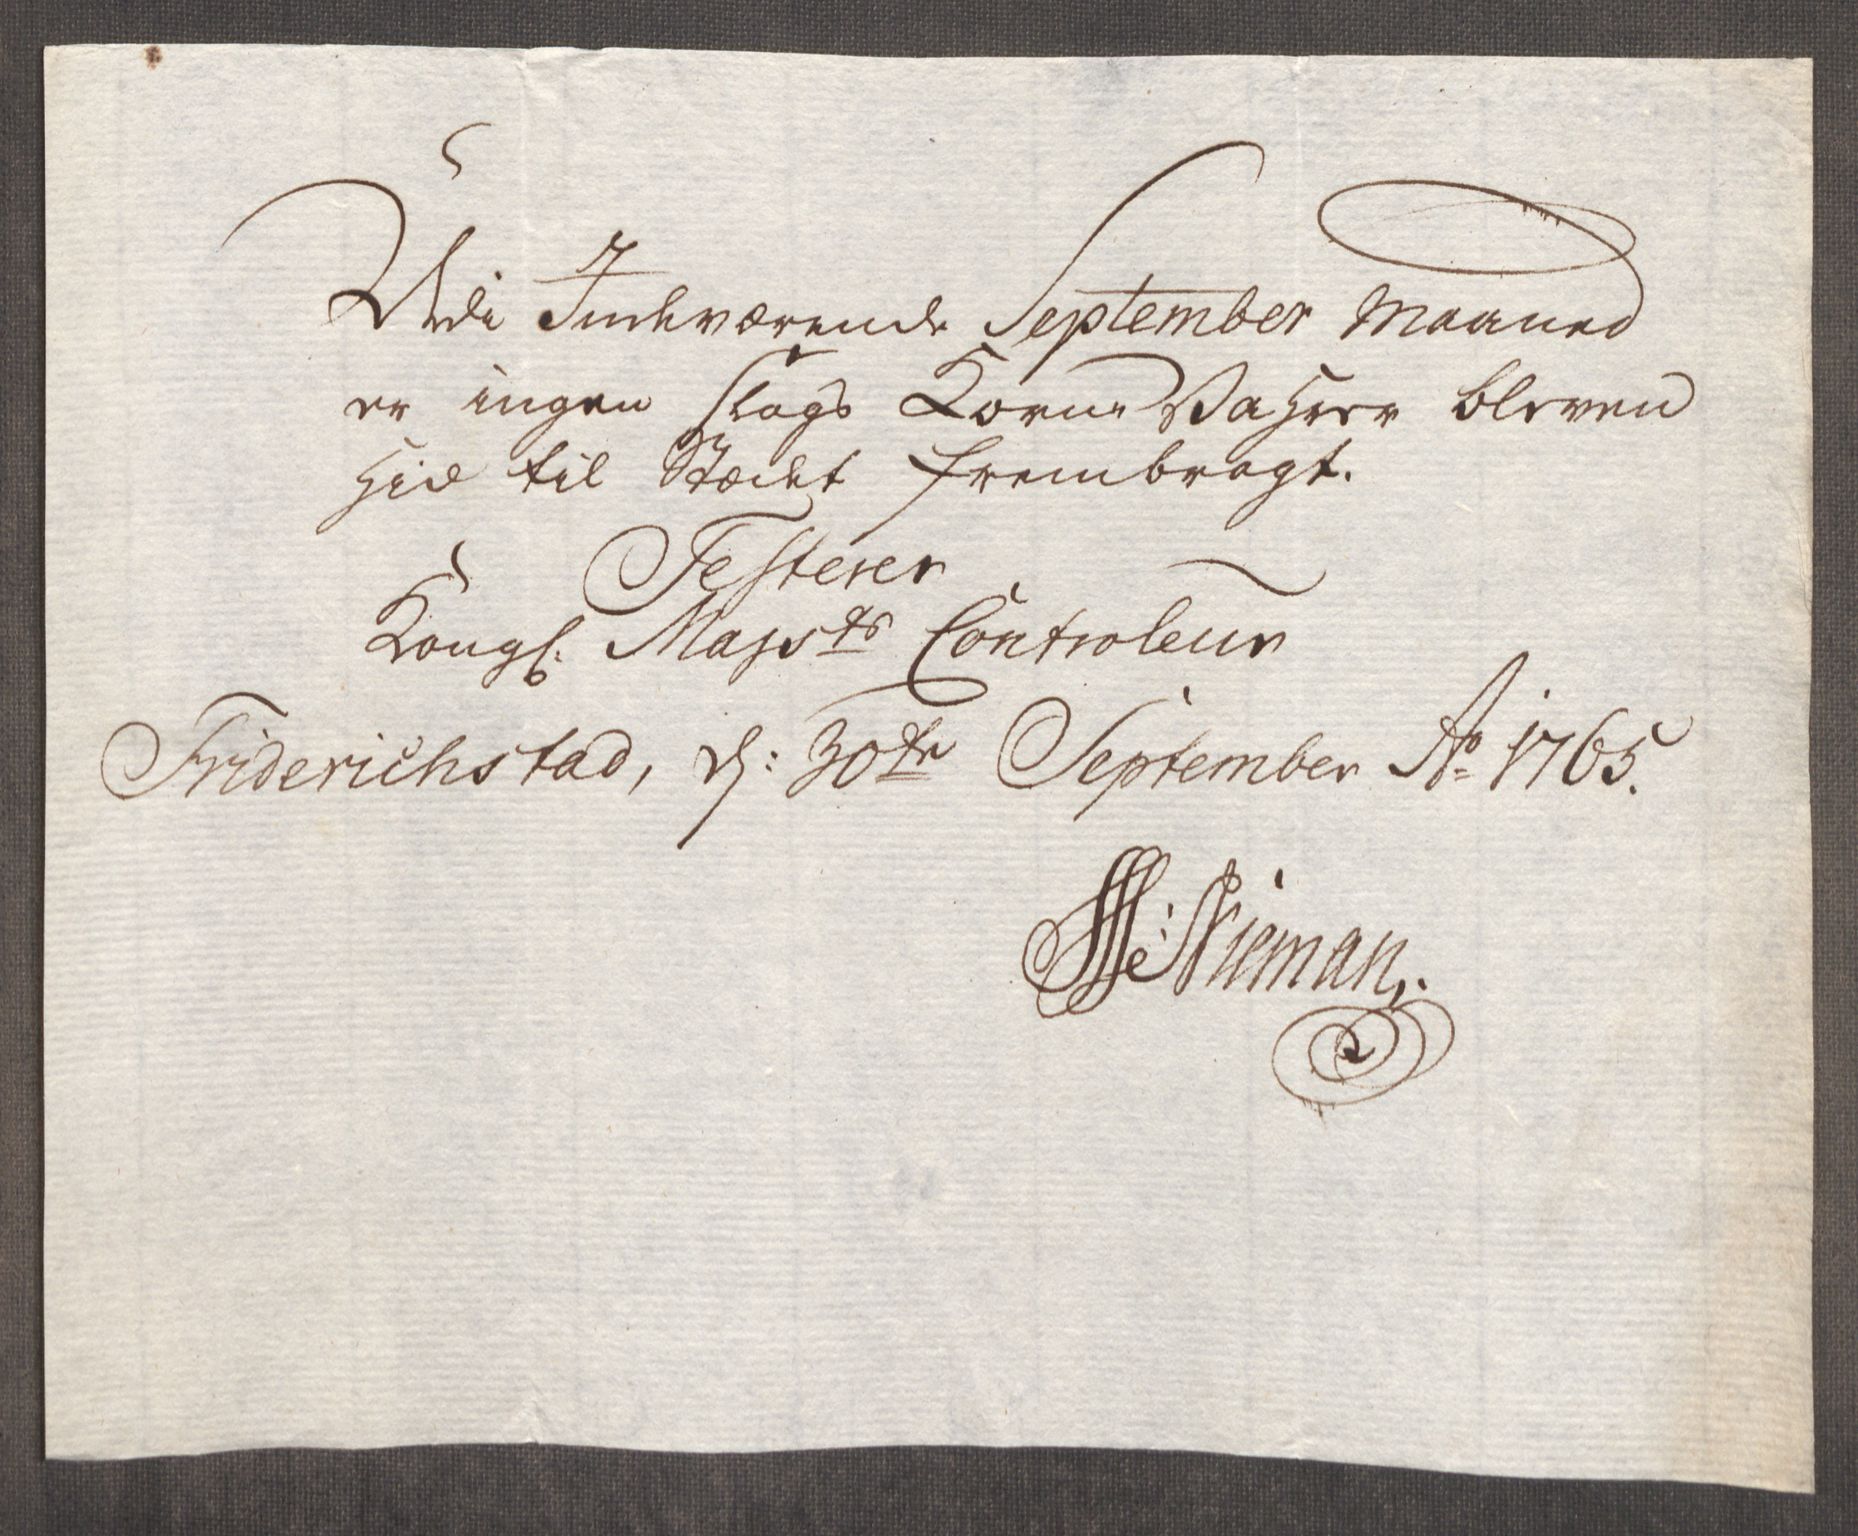 Udi Indeværende September Maaned
er ingen slags Korn Vahrer bleven
hid til Stædet frembragt.
Testerer
Kongl: Mayts Controleur
Friderichstad, d: 30te September Ao 1765.
Nieman,.